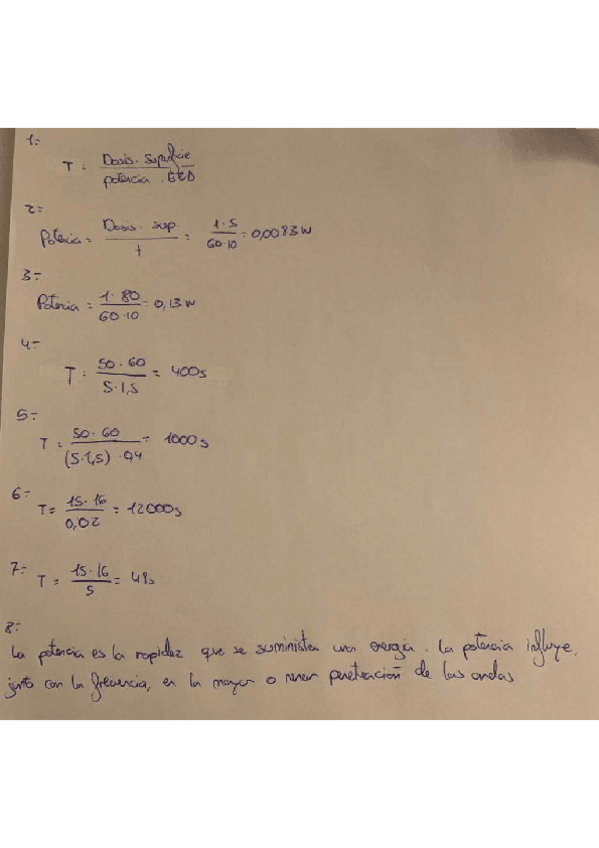 1=
T = Dosis · Superficie / potencia · ERD
2=
Potencia = Dosis · sup. / t = 1·5 / 60·10 = 0,0083 W
3=
Potencia = 1·80 / 60·10 = 0,13 W
4=
T = 50·60 / 5·1,5 = 400s
5=
T = 50·60 / (5·1,5)·0,4 = 1000s
6=
T = 15·16 / 0,02 = 12000s
7=
T = 15·16 / 5 = 48s
8=
La potencia es la rapidez que se suministra una energía. La potencia influye,
junto con la frecuencia, en la mayor o menor penetración de las ondas